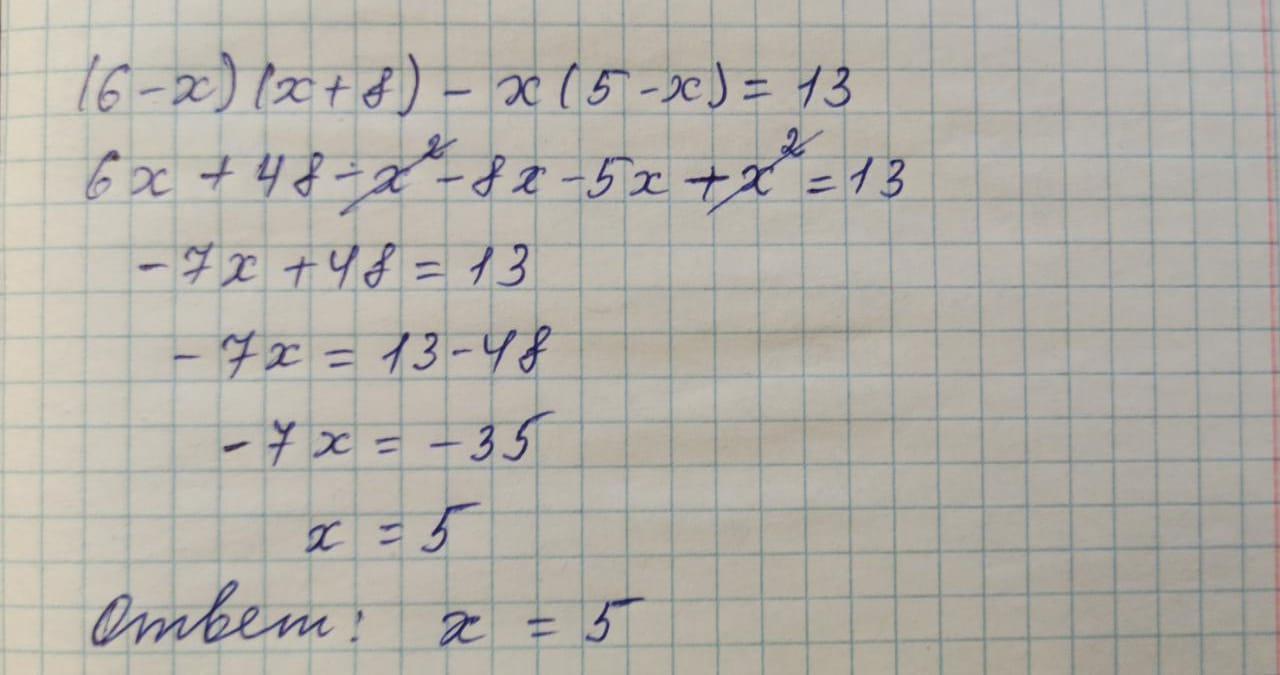 (6-x)(x+8) - x(5-x) = 13
6x + 48 - x² - 8x - 5x + x² = 13
-7x + 48 = 13
-7x = 13 - 48
-7x = -35
x = 5
Ответ: x = 5